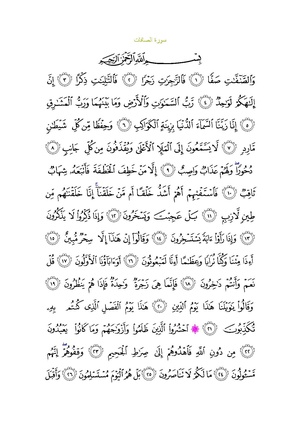 سورة الصافات
بِسْمِ ٱللَّهِ ٱلرَّحْمَٰنِ ٱلرَّحِيمِ
وَٱلصَّٰٓفَّٰتِ صَفًّا ١ فَٱلزَّٰجِرَٰتِ زَجْرًا ٢ فَٱلتَّٰلِيَٰتِ ذِكْرًا ٣ إِنَّ
إِلَٰهَكُمْ لَوَٰحِدٌ ٤ رَّبُّ ٱلسَّمَٰوَٰتِ وَٱلْأَرْضِ وَمَا بَيْنَهُمَا وَرَبُّ ٱلْمَشَٰرِقِ
٥ إِنَّا زَيَّنَّا ٱلسَّمَآءَ ٱلدُّنْيَا بِزِينَةٍ ٱلْكَوَاكِبِ ٦ وَحِفْظًا مِّن كُلِّ شَيْطَٰنٍ
مَّارِدٍ ٧ لَّا يَسَّمَّعُونَ إِلَى ٱلْمَلَإِ ٱلْأَعْلَىٰ وَيُقْذَفُونَ مِن كُلِّ جَانِبٍ ٨
دُحُورًا وَلَهُمْ عَذَابٌ وَاصِبٌ ٩ إِلَّا مَنْ خَطِفَ ٱلْخَطْفَةَ فَأَتْبَعَهُۥ شِهَابٌ
ثَاقِبٌ ١٠ فَٱسْتَفْتِهِمْ أَهُمْ أَشَدُّ خَلْقًا أَم مَّنْ خَلَقْنَآ إِنَّا خَلَقْنَٰهُم مِّن
طِينٍ لَّازِبٍۭ ١١ بَلْ عَجِبْتَ وَيَسْخَرُونَ ١٢ وَإِذَا ذُكِّرُوا۟ لَا يَذْكُرُونَ
١٣ وَإِذَا رَأَوْا۟ ءَايَةً يَسْتَسْخِرُونَ ١٤ وَقَالُوٓا۟ إِنْ هَٰذَآ إِلَّا سِحْرٌ مُّبِينٌ ١٥
أَءِذَا مِتْنَا وَكُنَّا تُرَابًا وَعِظَٰمًا أَءِنَّا لَمَبْعُوثُونَ ١٦ أَوَءَابَآؤُنَا ٱلْأَوَّلُونَ ١٧ قُلْ
نَعَمْ وَأَنتُمْ دَٰخِرُونَ ١٨ فَإِنَّمَا هِىَ زَجْرَةٌ وَٰحِدَةٌ فَإِذَا هُمْ يَنظُرُونَ ١٩
وَقَالُوا۟ يَٰوَيْلَنَا هَٰذَا يَوْمُ ٱلدِّينِ ٢٠ هَٰذَا يَوْمُ ٱلْفَصْلِ ٱلَّذِى كُنتُم بِهِۦ
تُكَذِّبُونَ ٢١ ۞ ٱحْشُرُوا۟ ٱلَّذِينَ ظَلَمُوا۟ وَأَزْوَٰجَهُمْ وَمَا كَانُوا۟ يَعْبُدُونَ
٢٢ مِن دُونِ ٱللَّهِ فَٱهْدُوهُمْ إِلَىٰ صِرَٰطِ ٱلْجَحِيمِ ٢٣ وَقِفُوهُمْ إِنَّهُم
مَّسْـُٔولُونَ ٢٤ مَا لَكُمْ لَا تَنَاصَرُونَ ٢٥ بَلْ هُمُ ٱلْيَوْمَ مُسْتَسْلِمُونَ ٢٦ وَأَقْبَلَ